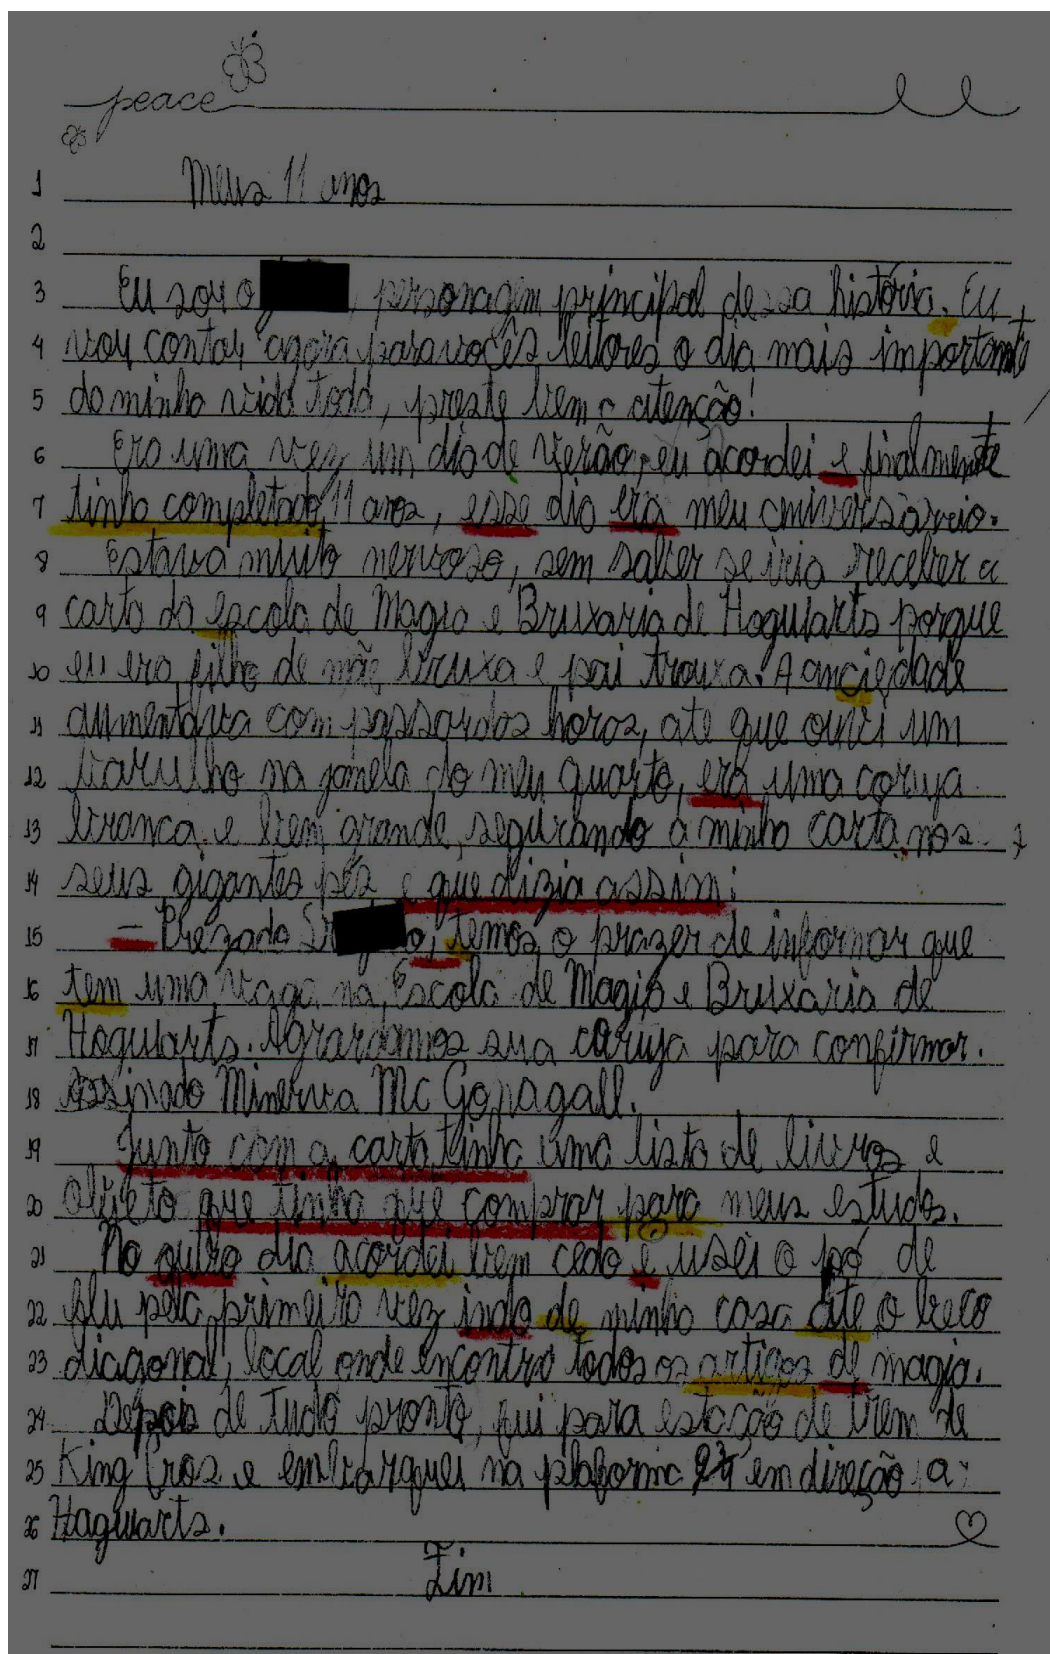 peace
1 Meus 11 anos
2
3 Eu sou o , personagem principal dessa história. Eu
4 vou contar agora para vocês leitores o dia mais importante
5 da minha vida toda, preste bem a atenção!
6 Era uma vez um dia de verão, eu acordei e finalmente
7 tinha completado 11 anos, esse dia era meu aniversário.
8 Estava muito nervoso, sem saber se iria receber a
9 carta da escola de Magia e Bruxaria de Hogwarts porque
10 eu era filho de mãe bruxa e pai trouxa. A anciedade
11 aumentava com passar das horas, ate que ouvi um
12 barulho na janela do meu quarto, era uma coruja
13 branca e bem grande, segurando a minha carta nos
14 seus gigantes pés e que dizia assim:
15 - Prezado Sr o, temos o prazer de informar que
16 tem uma vaga na Escola de Magia e Bruxaria de
17 Hogwarts. Agrardamos sua coruja para confirmar.
18 Assinado Minerva Mc Gonagall.
19 Junto com a carta tinha uma lista de livros e
20 objeto que tinha que comprar para meus estudos.
21 No outro dia acordei bem cedo e usei o pó de
22 flu pela primeira vez indo de minha casa ate o beco
23 diagonal, local onde encontro todos os artigos de magia.
24 Depois de tudo pronto, fui para estação de trem de
25 King Cros e embarquei na plaforma em direção a
26 Hagwarts.
27 Fim